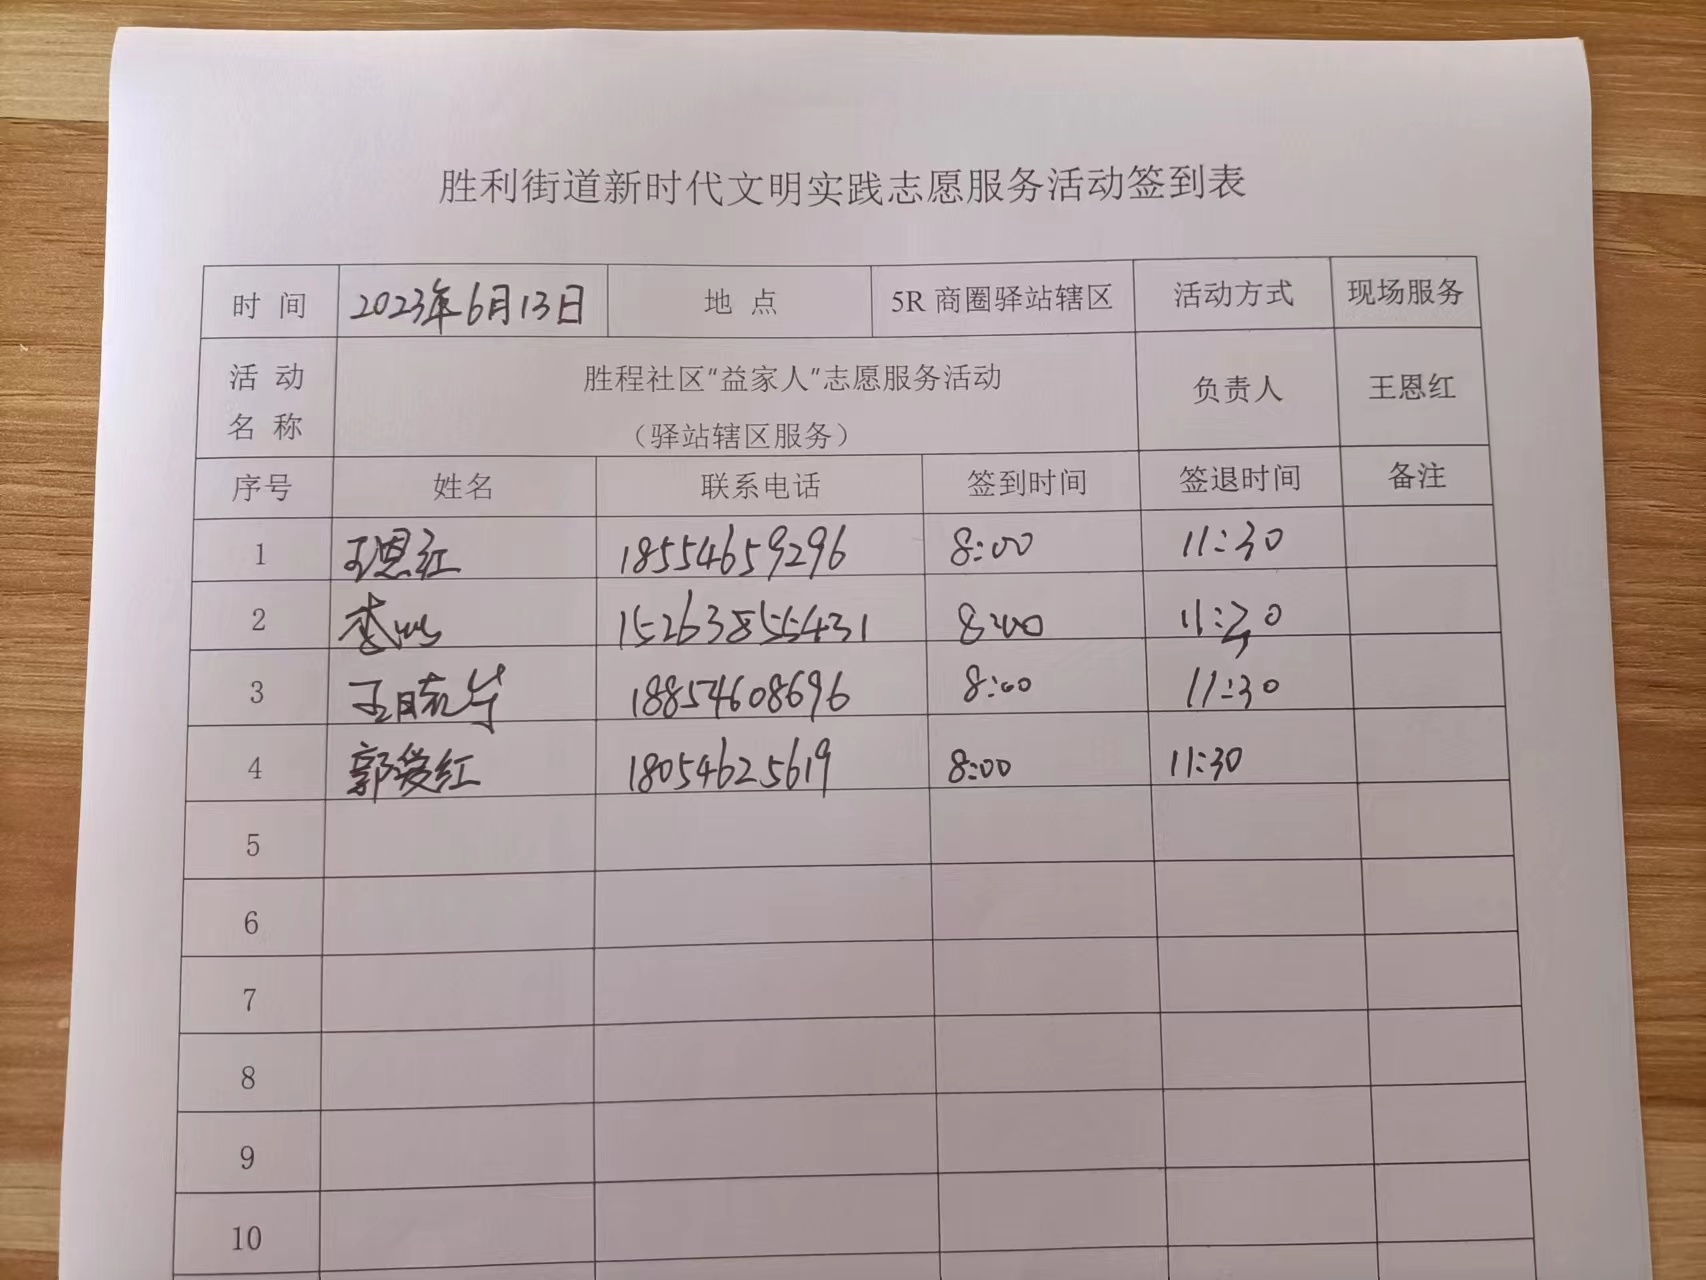 胜利街道新时代文明实践志愿服务活动签到表
时 间 2023年6月13日 地 点 5R 商圈驿站辖区 活动方式 现场服务
活 动 名 称 胜程社区“益家人”志愿服务活动 （驿站辖区服务） 负责人 王恩红
序号 姓名 联系电话 签到时间 签退时间 备注
1 王恩红 18554659296 8:00 11:30
2 8:00 11:30
3 18854608696 8:00 11:30
4 郭爱红 18054625619 8:00 11:30
5
6
7
8
9
10